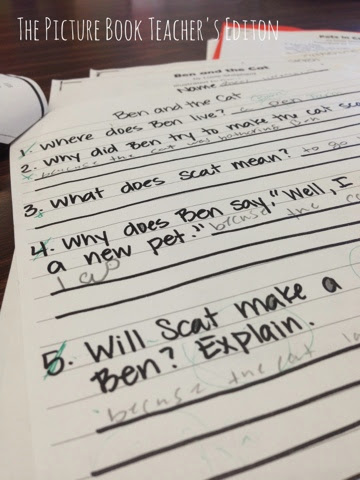 The Picture Book Teacher's Editon
Ben and the Cat
Name
Ben and the Cat
1. Where does Ben live?
2. Why did Ben try to make the cat
because the cat was bothering Ben
3. What does scat mean? to go
4. Why does Ben say, "Well, I
a new pet." becuse the
5. Will Scat make a
Ben? Explain.
becuse the cat